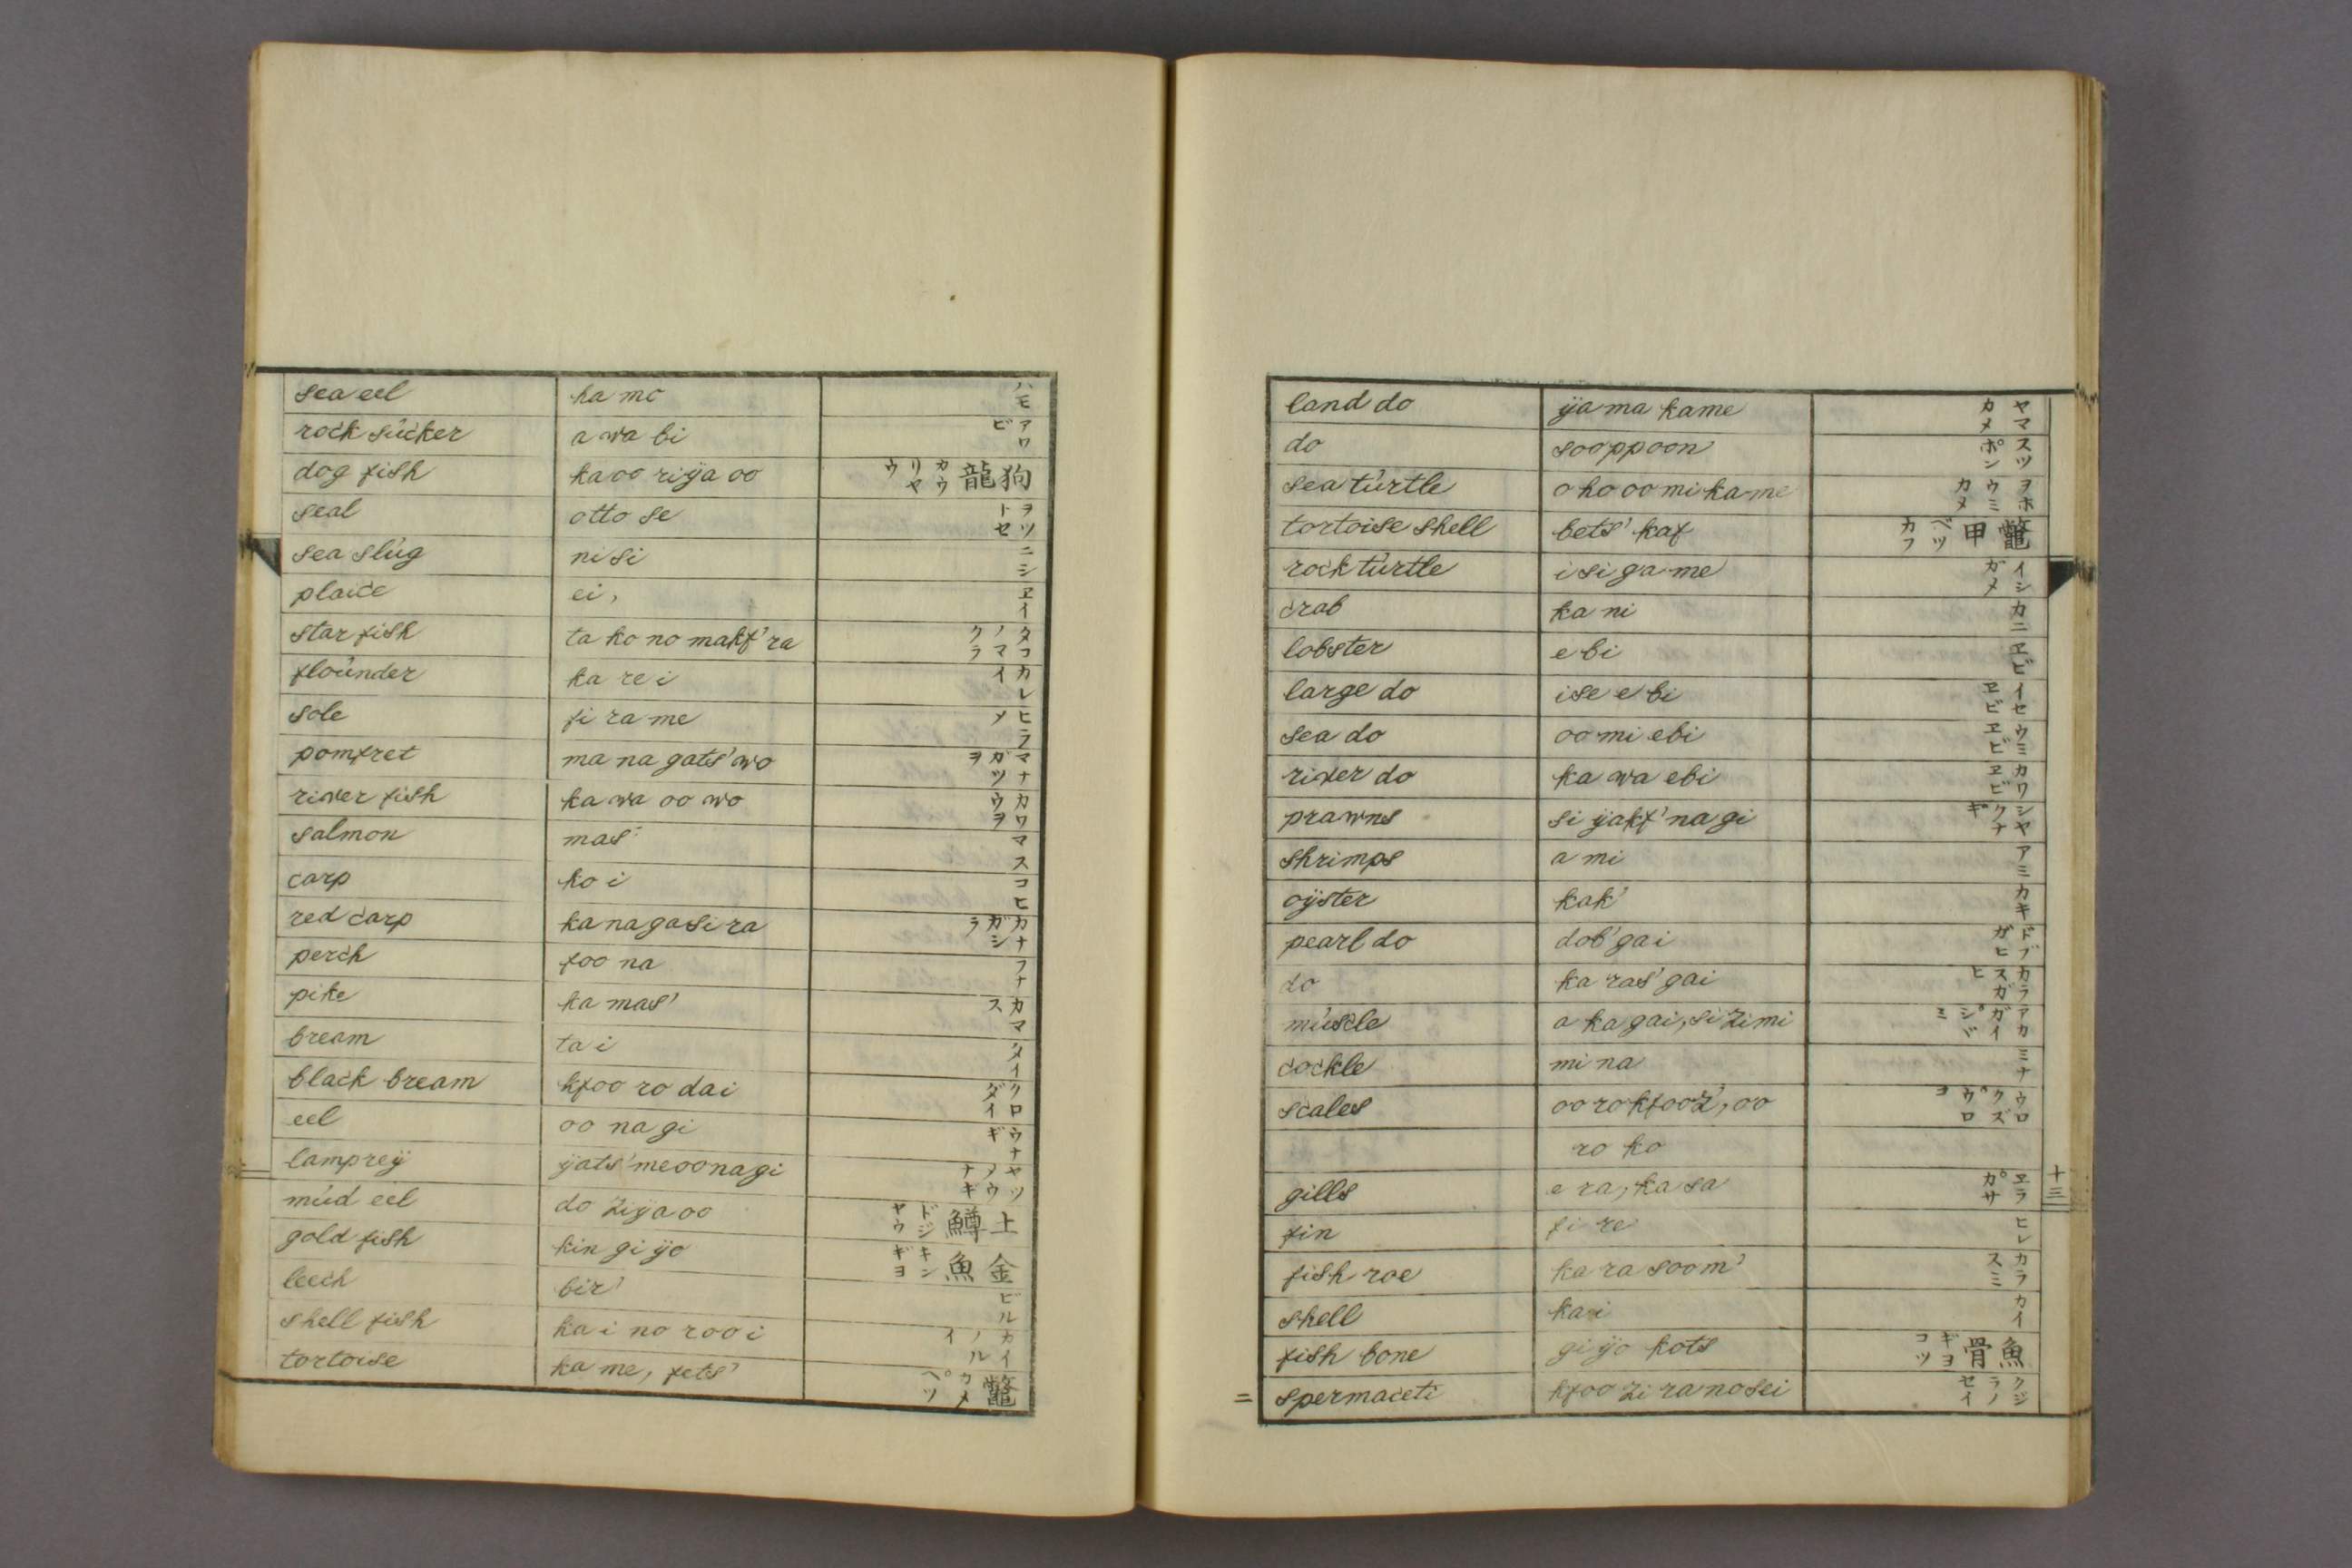 sea eel ha mo ハモ
rock sucker a wa bi アワビ
dog fish ka oo riÿa oo 狗龍 カウリヤウ
seal otto se ヲツトセ
sea slug ni si ニシ
plaice ei, ヱイ
star fish ta ko no makf'ra タコノマクラ
flounder ka re i カレイ
sole fi ra me ヒラメ
pomfret ma na gats' wo マナガツヲ
river fish ka wa oo wo カワウヲ
salmon mas' マス
carp ko i コヒ
red carp ka na ga si ra カナガシラ
perch foo na フナ
pike ka mas' カマス
bream ta i タイ
black bream kfoo ro dai クロダイ
eel oo na gi ウナギ
lamprey ÿats' me oonagi ヤツメウナキ
mud eel do ziÿa oo 土鱒 ドジヤウ
gold fish kin gi ÿo 金魚 キンギヨ
leech bir' ビル
shell fish ka i no roo i カイノルイ
tortoise ka me, fets' 鼈 カメ ペツ
land do ÿa ma kame ヤマカメ
do sooppoon スツポン
sea turtle o ho oo mi ka me ヲホウミカメ
tortoise shell bets' kaf 鼈甲 ベツカフ
rock turtle i si ga me イシガメ
crab ka ni カニ
lobster e bi ヱビ
large do ise e bi イセヱビ
sea do oo mi ebi ウミヱビ
river do ka wa ebi カワヱビ
prawns si ÿakf' na gi シヤクナギ
shrimps a mi アミ
oÿster kak' カキ
pearl do dob' gai ドブガヒ
do ka ras' gai カラスガヒ
muscle a ka gai, si zi mi アカガイ シヾミ
cockle mi na ミナ
scales oo ro kfooz', oo ウロクズ ウロヨ
ro ko
gills e ra, ka sa ヱラ カサ
fin fi re ヒレ
fish roe ka ra soom' カラスミ
shell ka i カイ
fish bone gi ÿo kots 魚骨 ギヨコツ
spermaceti kfoo zi ra no sei クジラノセイ
十三